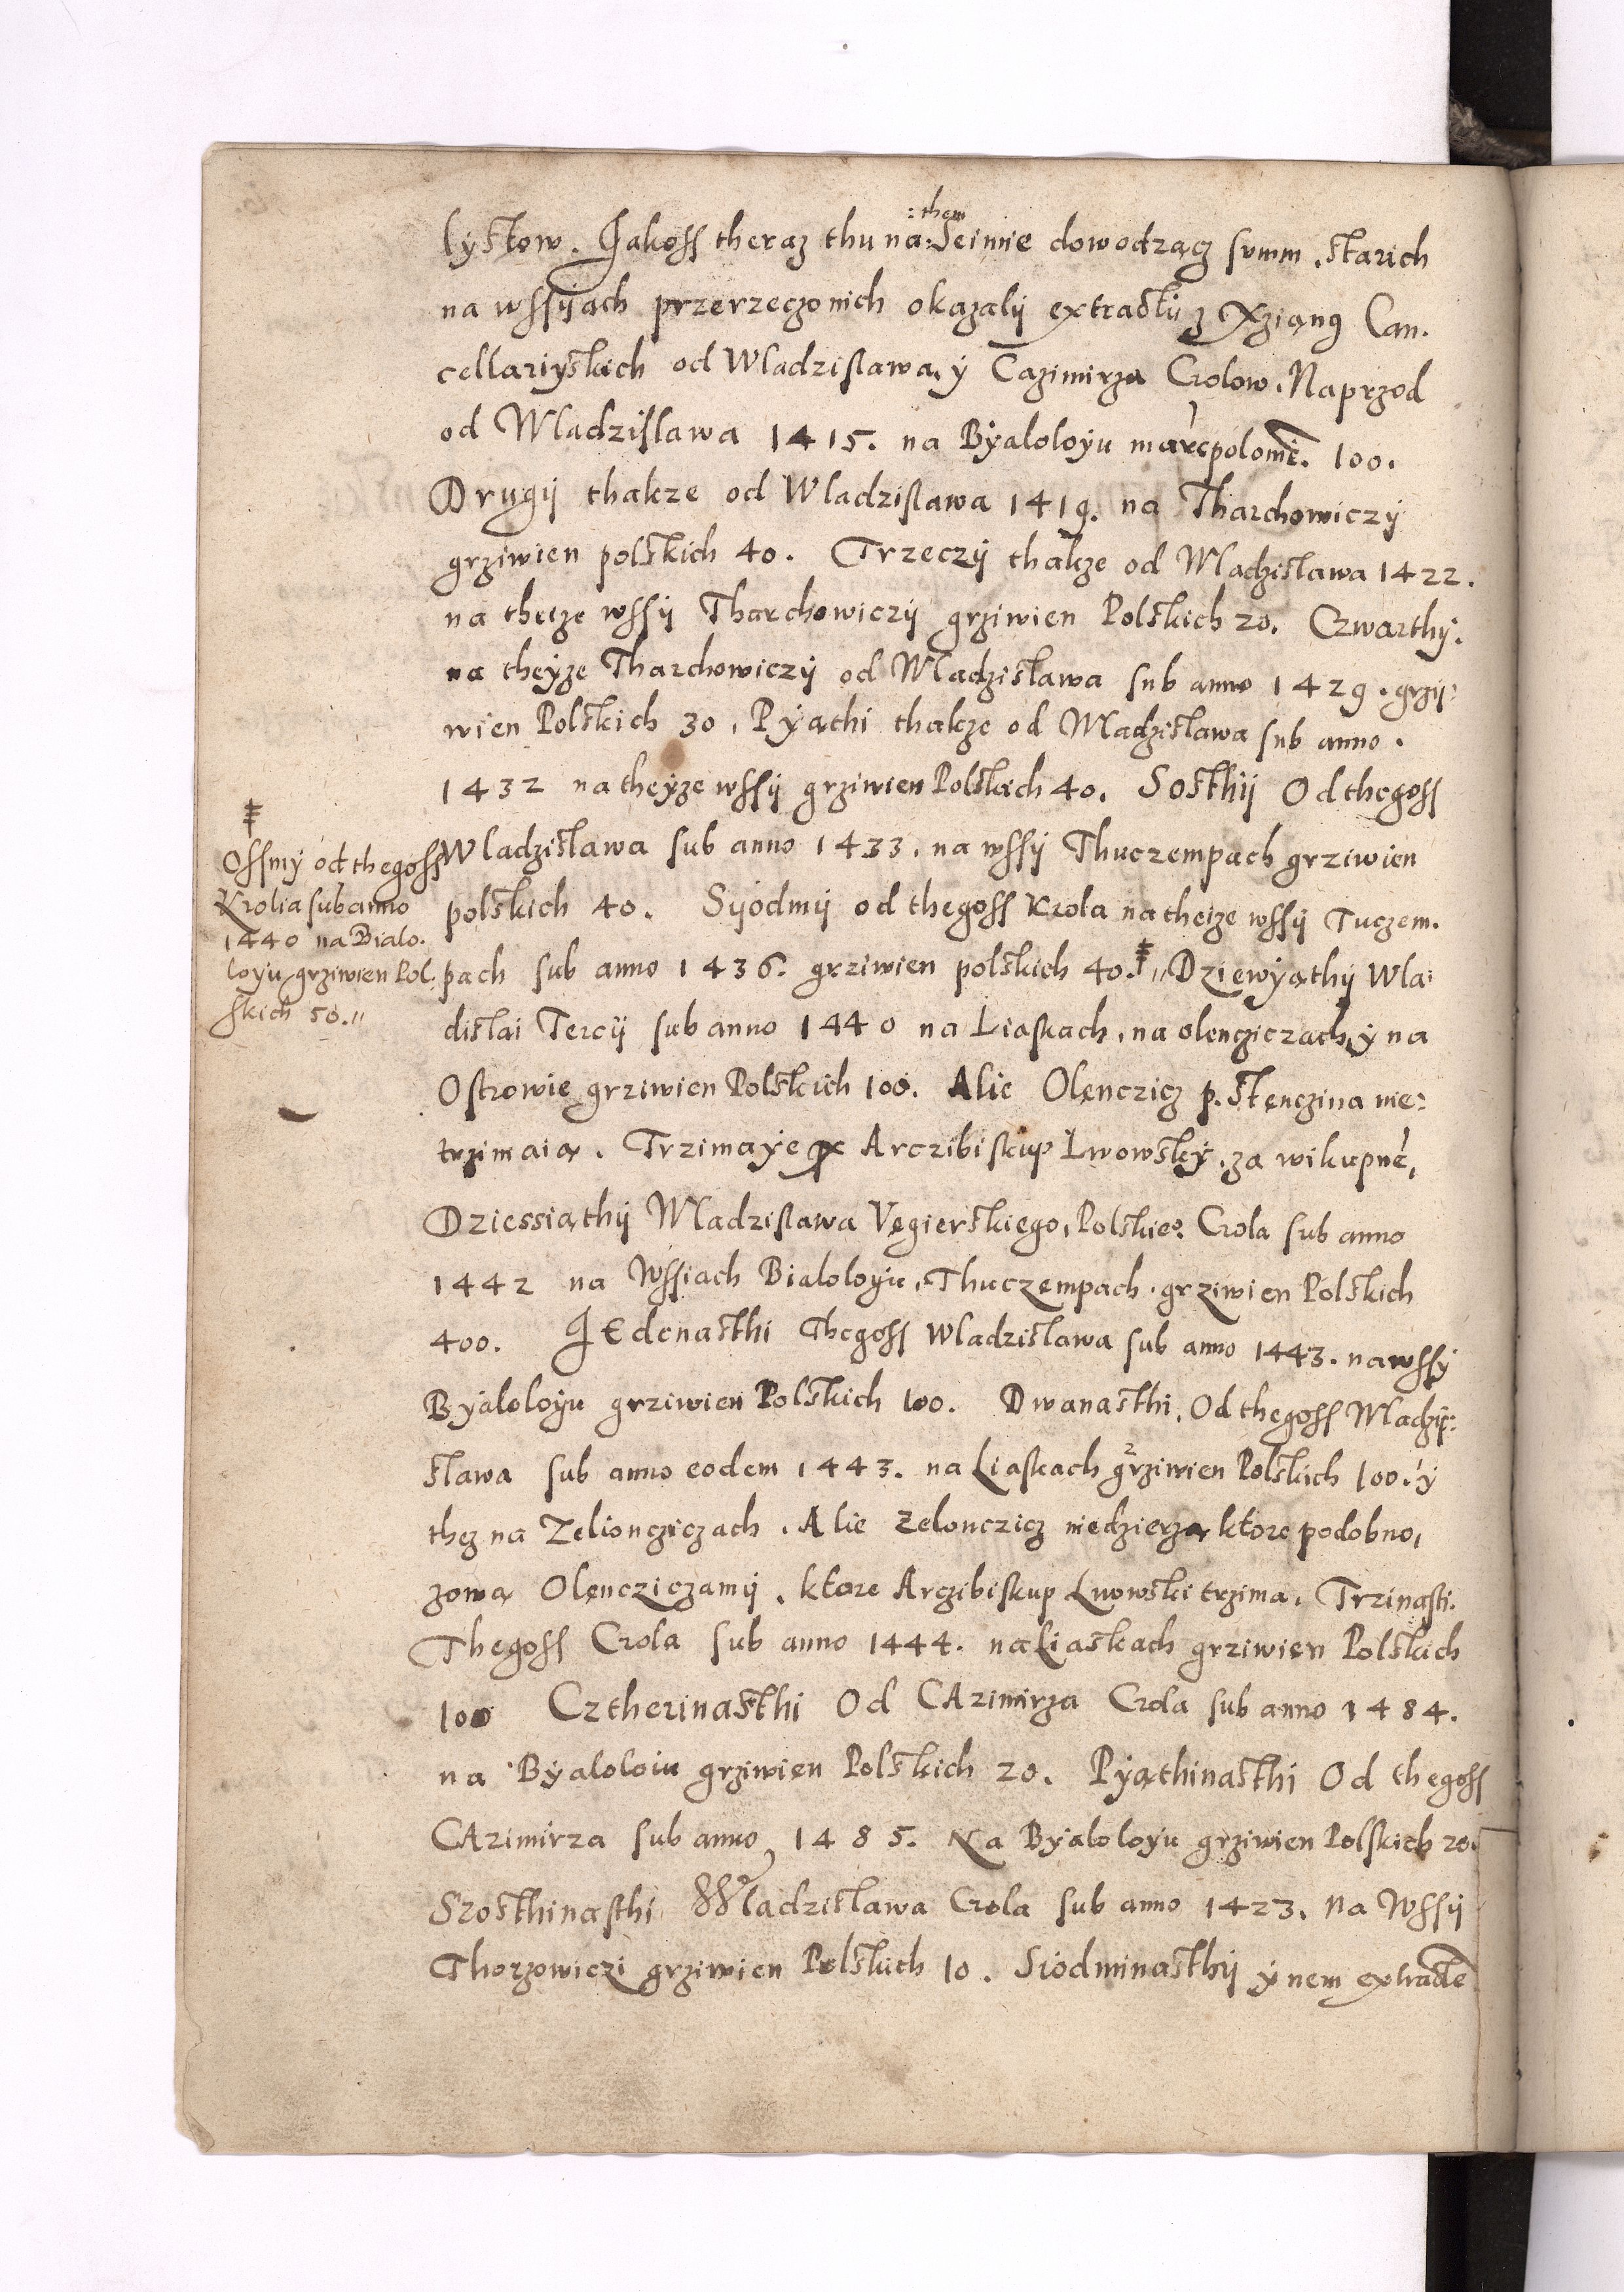 lystow. Jakoss theraz thu na :them Seimie dowodzącz summ. starich
na wssyach przerzeczonich okazaly extracti z Xziang Can.
cellariyskich od Wladzislawa, y Cazimirza Crolow. Naprzod
od Wladzislawa 1415. na Byaloloyu marcpolonic. 100.
Drugij thakze od Wladzislawa 1419. na Tharchowiczy
grziwien polskich 40. Trzeczy thakze od Wladzislawa 1422.
na theize wssij Tharchowiczij grziwien Polskich 20. Czwarthy.
na theyze Tharchowiczij od Wladzislawa sub anno 1429. grzij:
wien Polskich 30. Pyąthi thakze od Wladzislawa sub anno.
1432 na theyze wssij grziwien Polskich 40. Sosthij Od thegoss
Wladzislawa sub anno 1433. na wssij Thuczempach grziwien
polskich 40. Syodmij od thegoss Krola na theize wssij Tuczem.
pach sub anno 1436. grziwien polskich 40. ‡ „ Dziewyąthij Wla:
dislai Tercij sub anno 1440 na Liaskach, na olenczicząch y na
Ostrowie grziwien Polskich 100. Alie Olenczicz p. Stenczina nie:
trzimaią. Trzimaye Arczibiskup Lwowsky. za wikupne,
Dziessiąthij Wladzislawa Vegierskiego, Polskieo. Crola sub anno
1442 na Wssiach Bialoloyu, Thuczempach. grziwien Polskich
400. JEdenasthi Thegoss Wladzislawa sub anno 1443. na wssy
Byaloloyu grziwien Polskich 100. Dwanasthi, Od thegoss Wladzij:
slawa sub anno eodem 1443. na Liaskach grziwien Polskich 100. y
thez na Zelioncziczach. Alie Zelonczicz niedzierzą ktore podobno,
zową Olencziczamij. ktore Arczibiskup Lwowski trzima. Trzinasti.
Thegoss Crola sub anno 1444. na Liaskach grziwien Polskich
100 Cztherinasthi Od CAzimirza Crola sub anno 1484.
na Byaloloiu grziwien Polskich 20. Pyąthinasthi Od thegoss
CAzimirza sub anno, 1485. Na Byaloloyu grziwien Polskich 20.
Szosthinasthi Wladzislawa Crola sub anno 1423. na Wssij
Thorzowiczi grziwien Polskich 10. Siodminasthij ynem extractē
‡
Ossmy od thegoss
Krolia sub anno
1440 na Bialo.
loyu grziwien Pol.
skich 50.„